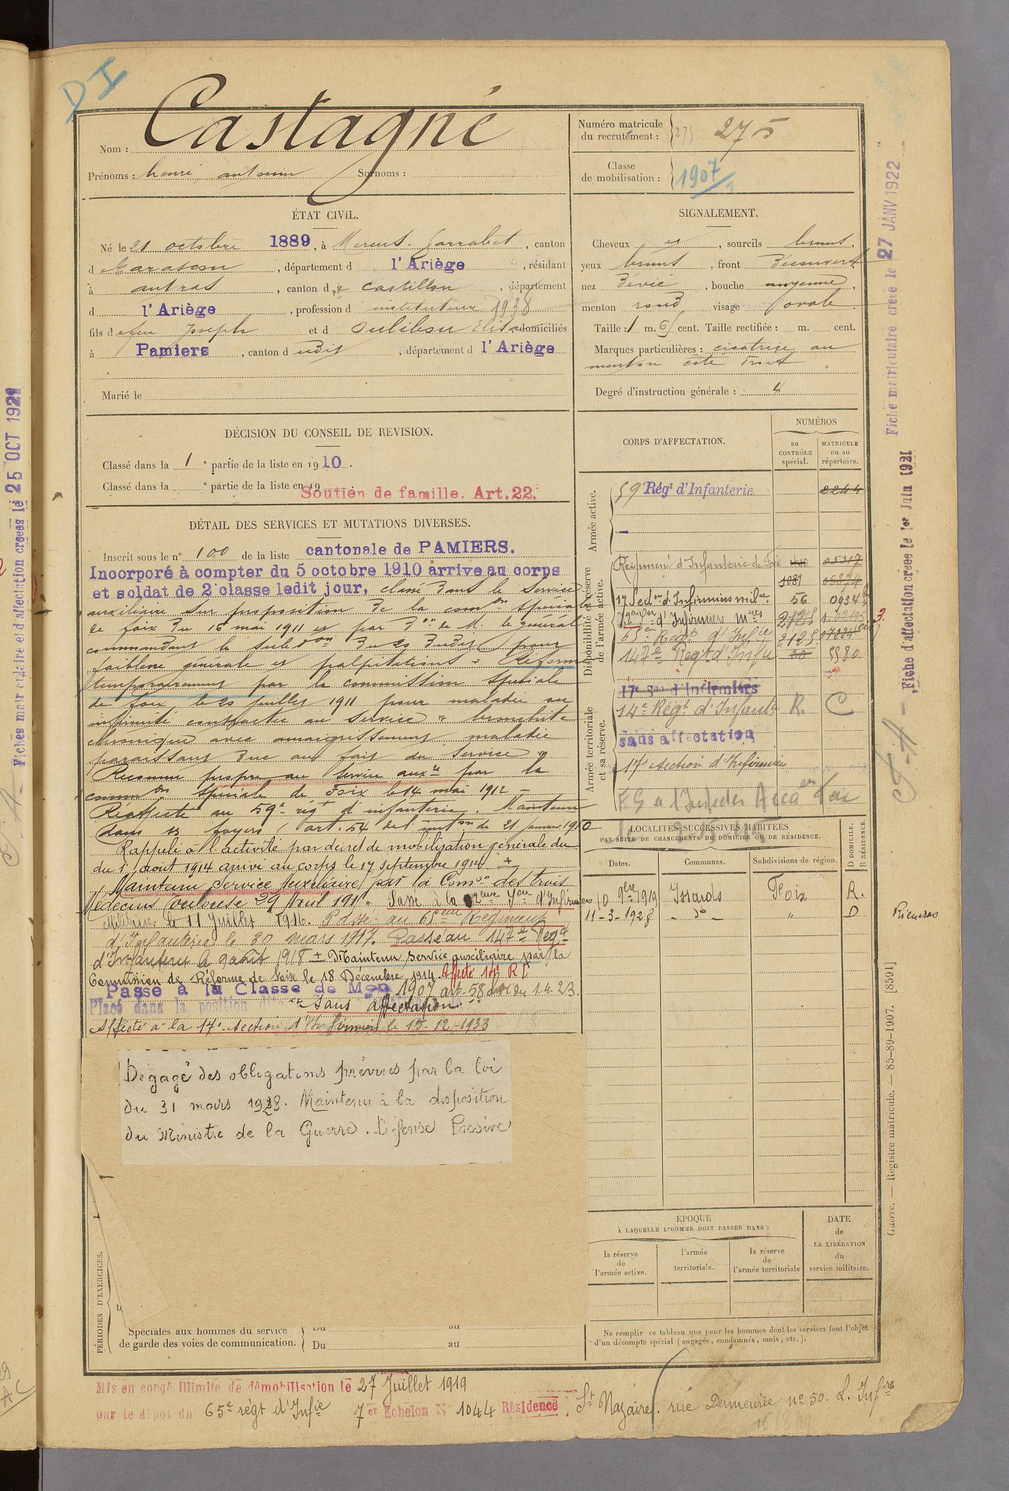 DI
Nom : Castagné
Prénoms : henri, antonin Surnoms :
Numéro matricule du recrutement : 275
Classe de mobilisation : 1907
ÉTAT CIVIL.
Né le 21 octobre 1889, à Mercus-Garrabet, canton
d Tarascon, département d l'Ariège, résidant
à antras, canton de Castillon, département
d l'Ariège, profession d instituteur 1938
fils de feu Joseph et d domiciliés
à Pamiers, canton d udit, département d l'Ariège
Marié le
SIGNALEMENT.
Cheveux et, sourcils bruns,
yeux bruns, front Découvert
nez Dévié, bouche moyenne,
menton rond visage ovale.
Taille : 1 m. 61 cent. Taille rectifiée : m. cent.
Marques particulières : cicatrice au
menton côté droit.
Degré d'instruction générale : 4
DÉCISION DU CONSEIL DE REVISION.
Classé dans la 1e partie de la liste en 1910.
Classé dans la e partie de la liste en 19
Soutien de famille. Art. 22.
DÉTAIL DES SERVICES ET MUTATIONS DIVERSES.
Inscrit sous le n° 100 de la liste cantonale de PAMIERS.
Incorporé à compter du 5 octobre 1910 arrive au corps
et soldat de 2e classe ledit jour, classé dans le Service
auxiliaire sur proposition de la comon spéciale
de foix du 16 mai 1911 et par Don de M. le général
commandant la Subdon du 20 Dudit pour
faiblesse générale et palpitations. Réformé
temporairement par la commission spéciale
de foix le 20 juillet 1911 pour maladie ou
infirmité contractée au service "bronchite
chronique avec amaigrissement maladie
paraissant due au fait du service"
Reconnu propre au Service auxre par la
common Spéciale de Foix le 14 mai 1912 -
Réaffecté au 59e régt d'infanterie. Maintenu
dans ses foyers (art. 54 de l'inston du 21 janvier 1910
Rappelé à l'activité par décret de mobilisation générale du
du 1er août 1914 arrivé au corps le 17 septembre 1914
Maintenu service Auxiliaire par la Comon des trois
Médecins Toulouse 29 Avril 191. Passé à la Son d'Infirmiers
Militaires le 11 Juillet 1916. Passé au 65eme Régiment
d'Infanterie le 30 mars 1917. Passé au 147e Régt
d'Infanterie le 9 août 1918 Maintenu service auxiliaire par la
Commission de Réforme de Foix le 18 Décembre 1914. Affecté 14e R.I
Passé à la Classe de Mon 1907 art. 58 loi du 1.4.23.
Placé dans la position dite "Sans affectation"
Affecté à la 17e Section d'Infirmiers le 15.12.1933
Dégagé des obligations prévues par la loi
du 31 mars 1928. Maintenu à la disposition
du Ministre de la Guerre. Défense Passive
CORPS D'AFFECTATION.
NUMÉROS
au CONTRÔLE spécial.
MATRICULE ou au répertoire.
Armée active.
59 Régt d'Infanterie 2244
Disponibilité et réserve de l'armée active.
Régiment d'Infanterie de Foix
1081
17 Secon d'Infirmiers milres 56
d'Infirmiers Mres
65e Regt d'Infie 2125
147e Regt d'Infie 5580
Armée territoriale et sa réserve.
17e Son d'Infirmiers
14e Régt d'Infanterie R. C
sans affectation
17e Section d'Infirmiers
LOCALITÉS SUCCESSIVES HABITÉES
PAR SUITE DE CHANGEMENTS DE DOMICILE OU DE RÉSIDENCE.
Dates. Communes. Subdivisions de région. D DOMICILE. R RÉSIDENCE.
10 9bre 1919 Issards Foix R.
11-3-1928 - do - " D
ÉPOQUE
À LAQUELLE L'HOMME DOIT PASSER DANS :
la réserve de l'armée active.
l'armée territoriale.
la réserve de l'armée territoriale
DATE de LA LIBÉRATION du service militaire.
Ne remplir ce tableau que pour les hommes dont les services font l'objet
d'un décompte spécial (engagés, condamnés, omis, etc.).
PÉRIODES D'EXERCICES.
Spéciales aux hommes du service Du au
de garde des voies de communication. Du au
Mis en congé illimité de démobilisation le 27 Juillet 1919
par le dépôt du 65e régt d'Infie 7er Echelon N° 1044 Résidence : St Nazaire, rue Demeurie n° 50. L. Infre
Fiches matriculaire et d'affectation créées le 25 OCT 1921
Fiche matriculaire créée le 27 JANV 1922
Fiche d'affectation créée le 1er Juin 1921
Guerre. — Registre matricule. — 85-89-1907. [8591]